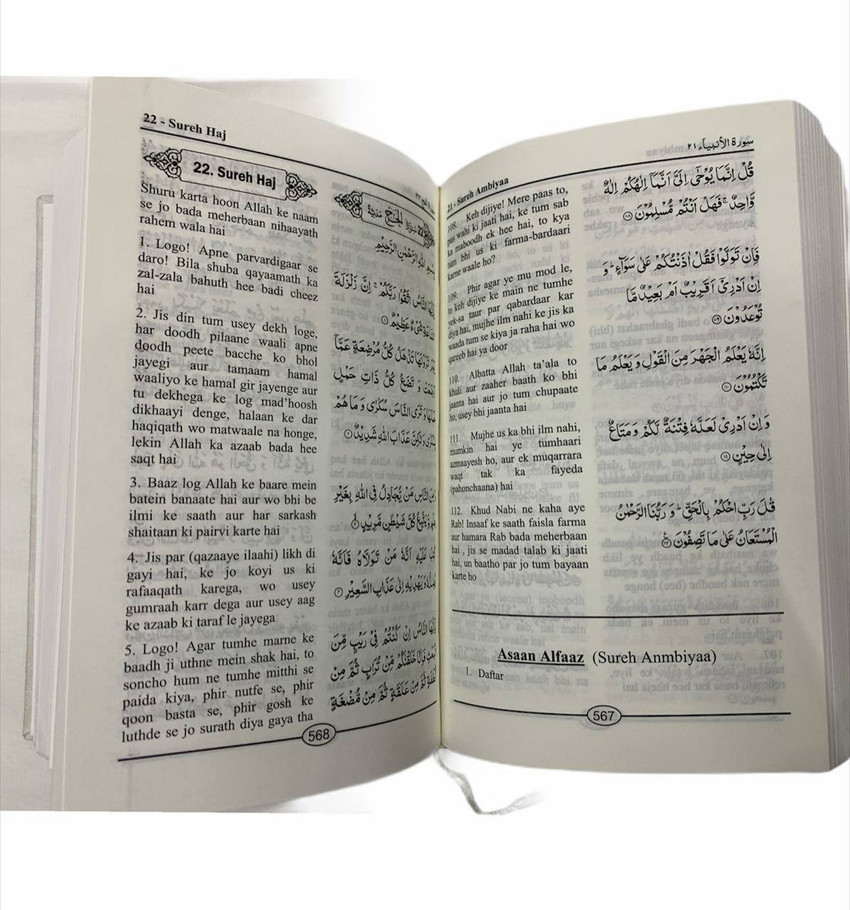 21 - Sureh Ambiyaa
سورة الأنبيآء ٢١
108. Keh dijiye! Mere paas to,
pas wahi ki jaati hai, ke tum sab
ka maboodh ek hee hai, to kya
tum bhi us ki farma-bardaari
karne waale ho?
109. Phir agar ye mu mod le,
to keh dijiye ke main ne tumhe
yek-sa taur par qabardaar kar
diya hai, mujhe ilm nahi ke jis ka
waada tum se kiya ja raha hai wo
qareeb hai ya door
110. Albatta Allah ta'ala to
khuli aur zaaher baath ko bhi
jaanta hai aur jo tum chupaate
ho, usey bhi jaanta hai
111. Mujhe us ka bhi ilm nahi,
mumkin hai ye tumhaari
azmaayesh ho, aur ek muqarrara
waqt tak ka fayeda
(pahonchaana) hai
112. Khud Nabi ne kaha aye
Rab! Insaaf ke saath faisla farma
aur hamara Rab bada meherbaan
hai , jis se madad talab ki jaati
hai, un baatho par jo tum bayaan
karte ho
قُلْ اِنَّمَا يُوْحٰٓى اِلَيَّ اَنَّمَآ اِلٰهُكُمْ اِلٰهٌ
وَّاحِدٌ ۚ فَهَلْ اَنْتُمْ مُّسْلِمُوْنَ ۝
فَاِنْ تَوَلَّوْا فَقُلْ اٰذَنْتُكُمْ عَلٰى سَوَآءٍ ۭ وَ
اِنْ اَدْرِيْٓ اَقَرِيْبٌ اَمْ بَعِيْدٌ مَّا
تُوْعَدُوْنَ ۝
اِنَّهٗ يَعْلَمُ الْجَهْرَ مِنَ الْقَوْلِ وَيَعْلَمُ مَا
تَكْتُمُوْنَ ۝
وَاِنْ اَدْرِيْ لَعَلَّهٗ فِتْنَةٌ لَّكُمْ وَمَتَاعٌ
اِلٰى حِيْنٍ ۝
قٰلَ رَبِّ احْكُمْ بِالْحَقِّ ۭ وَرَبُّنَا الرَّحْمٰنُ
الْمُسْتَعَانُ عَلٰى مَا تَصِفُوْنَ ۝
Asaan Alfaaz (Sureh Anmbiyaa)
1. Daftar
567
22 - Sureh Haj
22. Sureh Haj
Shuru karta hoon Allah ke naam
se jo bada meherbaan nihaayath
rahem wala hai
1. Logo! Apne parvardigaar se
daro! Bila shuba qayaamath ka
zal-zala bahuth hee badi cheez
hai
2. Jis din tum usey dekh loge,
har doodh pilaane waali apne
doodh peete bacche ko bhol
jayegi aur tamaam hamal
waaliyo ke hamal gir jayenge aur
tu dekhega ke log mad'hoosh
dikhaayi denge, halaan ke dar
haqiqath wo matwaale na honge,
lekin Allah ka azaab bada hee
saqt hai
3. Baaz log Allah ke baare mein
batein banaate hai aur wo bhi be
ilmi ke saath aur har sarkash
shaitaan ki pairvi karte hai
4. Jis par (qazaaye ilaahi) likh di
gayi hai, ke jo koyi us ki
rafaaqath karega, wo usey
gumraah karr dega aur usey aag
ke azaab ki taraf le jayega
5. Logo! Agar tumhe marne ke
baadh ji uthne mein shak hai, to
soncho hum ne tumhe mitthi se
paida kiya, phir nutfe se, phir
qoon basta se, phir gosh ke
luthde se jo surath diya gaya tha
سُوْرَةُ الْحَجِّ مَدَنِيَّةٌ
بِسْمِ اللّٰهِ الرَّحْمٰنِ الرَّحِيْمِ
النَّاسُ اتَّقُوْا رَبَّكُمْ ۚ اِنَّ زَلْزَلَةَ
شَيْءٌ عَظِيْمٌ ۝
تَرَوْنَهَا تَذْهَلُ كُلُّ مُرْضِعَةٍ عَمَّآ
اَرْضَعَتْ وَتَضَعُ كُلُّ ذَاتِ حَمْلٍ
حَمْلَهَا وَتَرَى النَّاسَ سُكٰرٰى وَمَا هُمْ
بِسُكٰرٰى وَلٰكِنَّ عَذَابَ اللّٰهِ شَدِيْدٌ ۝
النَّاسِ مَنْ يُّجَادِلُ فِي اللّٰهِ بِغَيْرِ
عِلْمٍ وَّيَتَّبِعُ كُلَّ شَيْطٰنٍ مَّرِيْدٍ ۝
عَلَيْهِ اَنَّهٗ مَنْ تَوَلَّاهُ فَاَنَّهٗ
يُضِلُّهٗ وَيَهْدِيْهِ اِلٰى عَذَابِ السَّعِيْرِ ۝
النَّاسُ اِنْ كُنْتُمْ فِيْ رَيْبٍ مِّنَ
الْبَعْثِ فَاِنَّا خَلَقْنٰكُمْ مِّنْ تُرَابٍ ثُمَّ مِنْ
نُّطْفَةٍ ثُمَّ مِنْ عَلَقَةٍ ثُمَّ مِنْ مُّضْغَةٍ
568